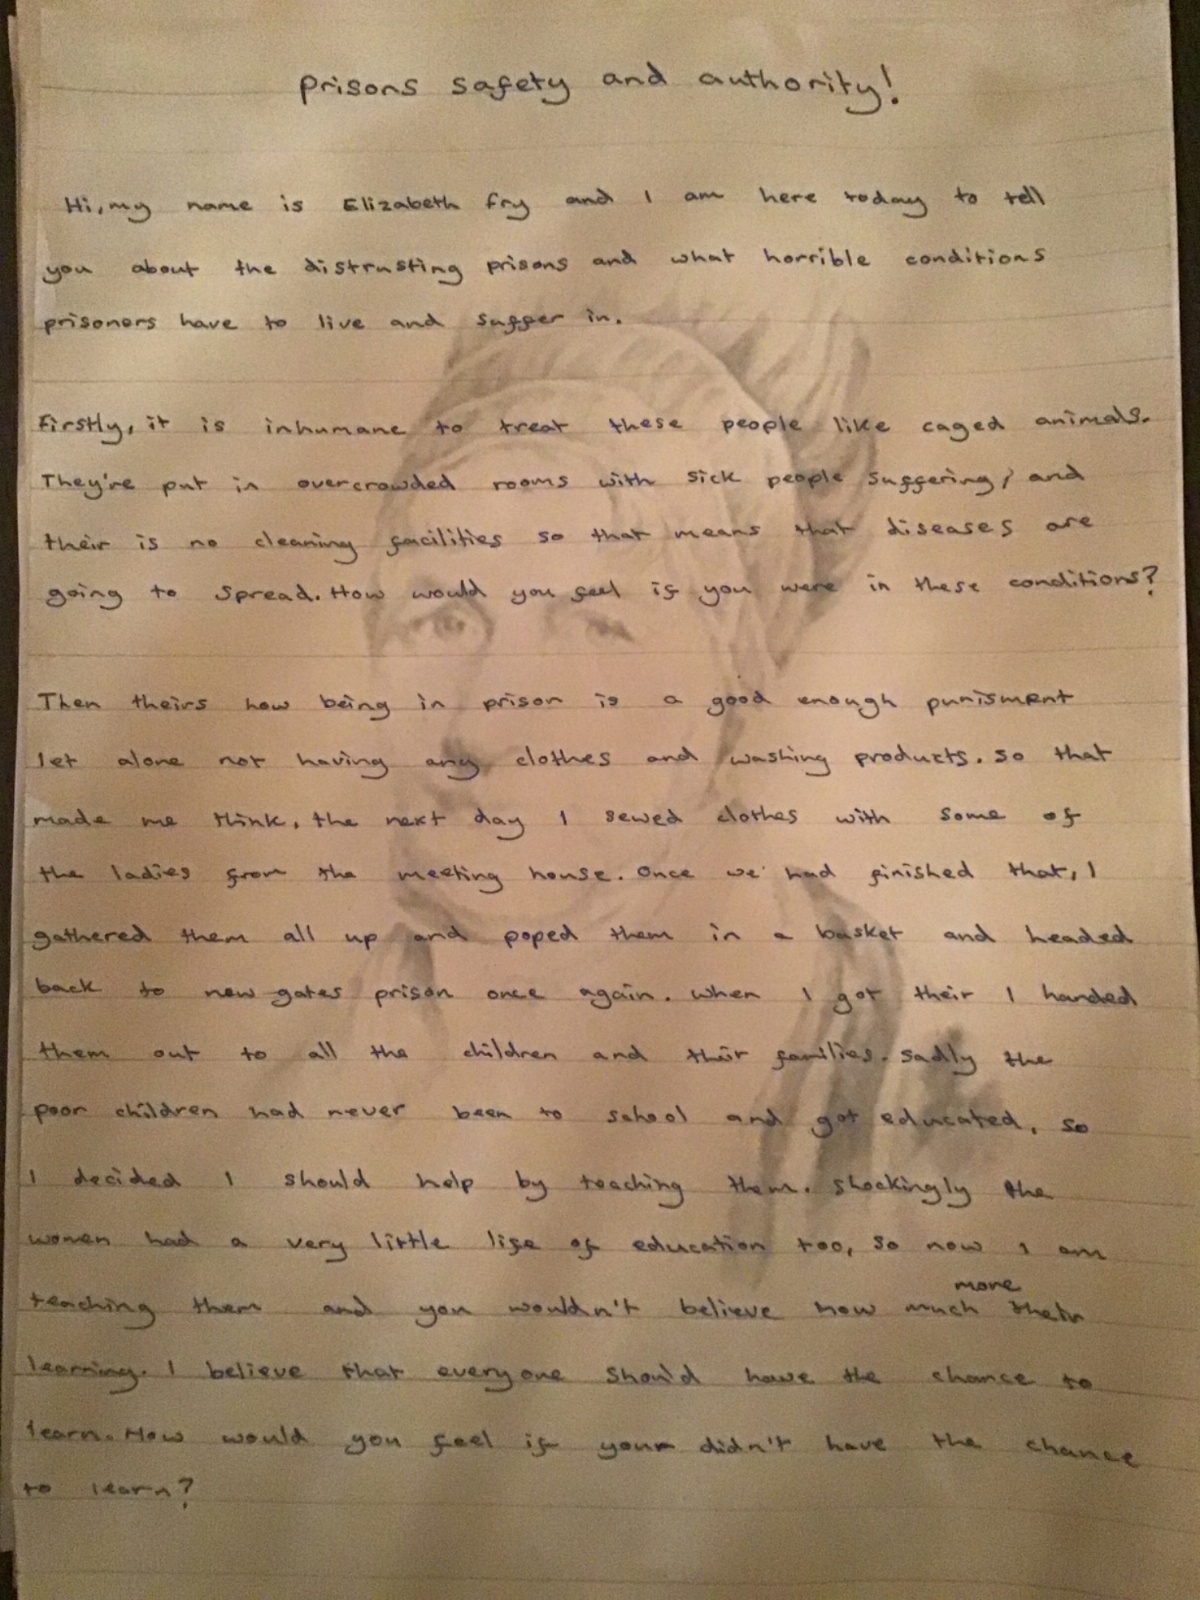 prisons safety and authority!
Hi, my name is Elizabeth fry and I am here today to tell
you about the distrusting prisons and what horrible conditions
prisoners have to live and suffer in.
Firstly, it is inhumane to treat these people like caged animals.
They're put in overcrowded rooms with sick people suffering, and
their is no cleaning facilities so that means that diseases are
going to spread. How would you feel if you were in these conditions?
Then theirs how being in prison is a good enough punisment
let alone not having any clothes and washing products. So that
made me think, the next day I sewed clothes with some of
the ladies from the meeting house. Once we had finished that, I
gathered them all up and poped them in a basket and headed
back to new gates prison once again. When I got their I handed
them out to all the children and their families. Sadly the
poor children had never been to school and got educated, so
I decided I should help by teaching them. Shockingly the
women had a very little life of education too, so now I am
more
teaching them and you wouldn't believe how much their
learning. I believe that everyone should have the chance to
learn. How would you feel if your didn't have the chance
to learn?